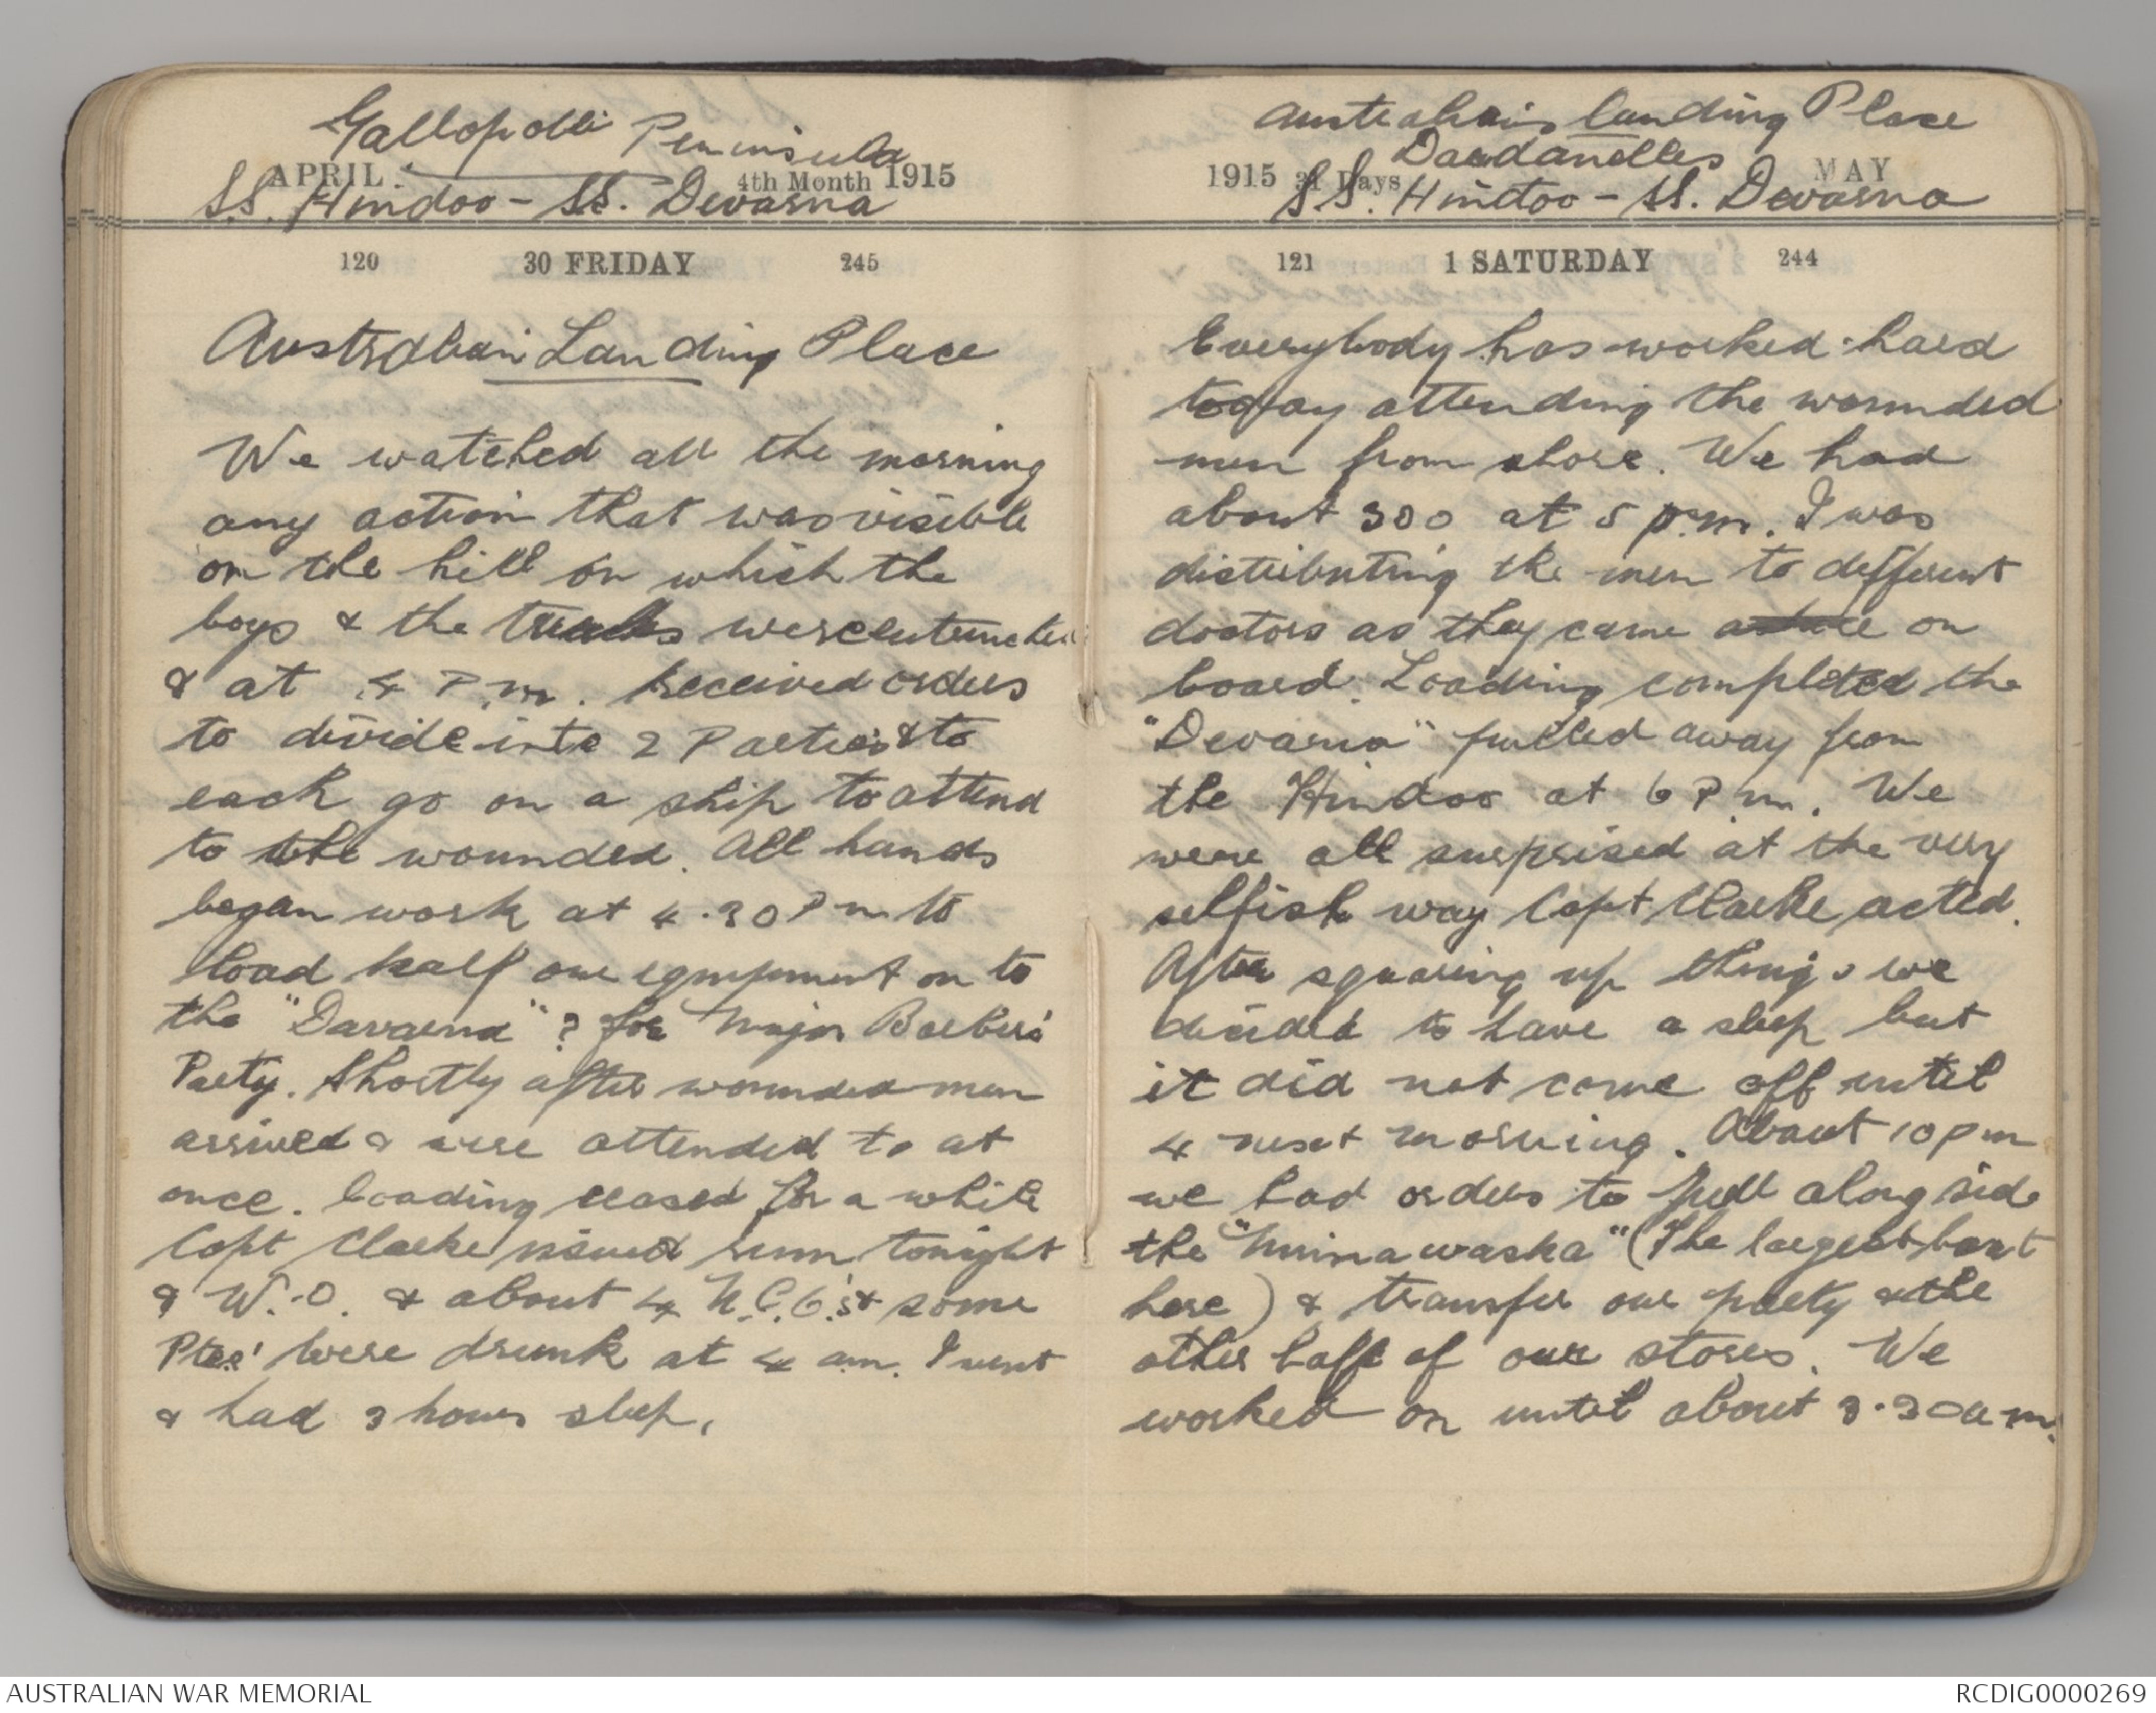 Gallopolli Peninsula
APRIL 4th Month 1915
S.S. Hindoo - SS. Devarna
120 30 FRIDAY 245
Australian Landing Place
We watched all the morning
any action that was visible
on the hill on which the
boys & the were entrenched
& at 4 P.m. received orders
to divide into 2 Parties & to
each go on a ship to attend
to the wounded. All hands
began work at 4.30 Pm to
load half our equipment on to
the "Davarna"? for Major Barber's
Party. Shortly after wounded men
arrived & were attended to at
once. Loading ceased for a while
Capt Clarke issued rum tonight
& W.O. & about 4 N.C.O's & some
Ptes' were drunk at 4 am. I went
& had 3 hours sleep.
Australian landing Place
Dardanelles
1915 31 Days MAY
S.S. Hindoo - SS. Devarna
121 1 SATURDAY 244
Everybody has worked hard
today attending the wounded
men from shore. We had
about 300 at 5 p.m. I was
distributing the men to different
doctors as they came on
board. Loading completed the
"Devarna" pulled away from
the Hindoo at 6 P m. We
were all surprised at the very
selfish way Capt Clarke acted.
After squaring up things we
decided to have a sleep but
it did not come off until
4 next morning. About 10 pm
we had orders to pull along side
the "Minnawaska" (The largest boat
here) & transfer our party & the
other half of our stores. We
worked on until about 3.30 a m.
AUSTRALIAN WAR MEMORIAL
RCDIG0000269